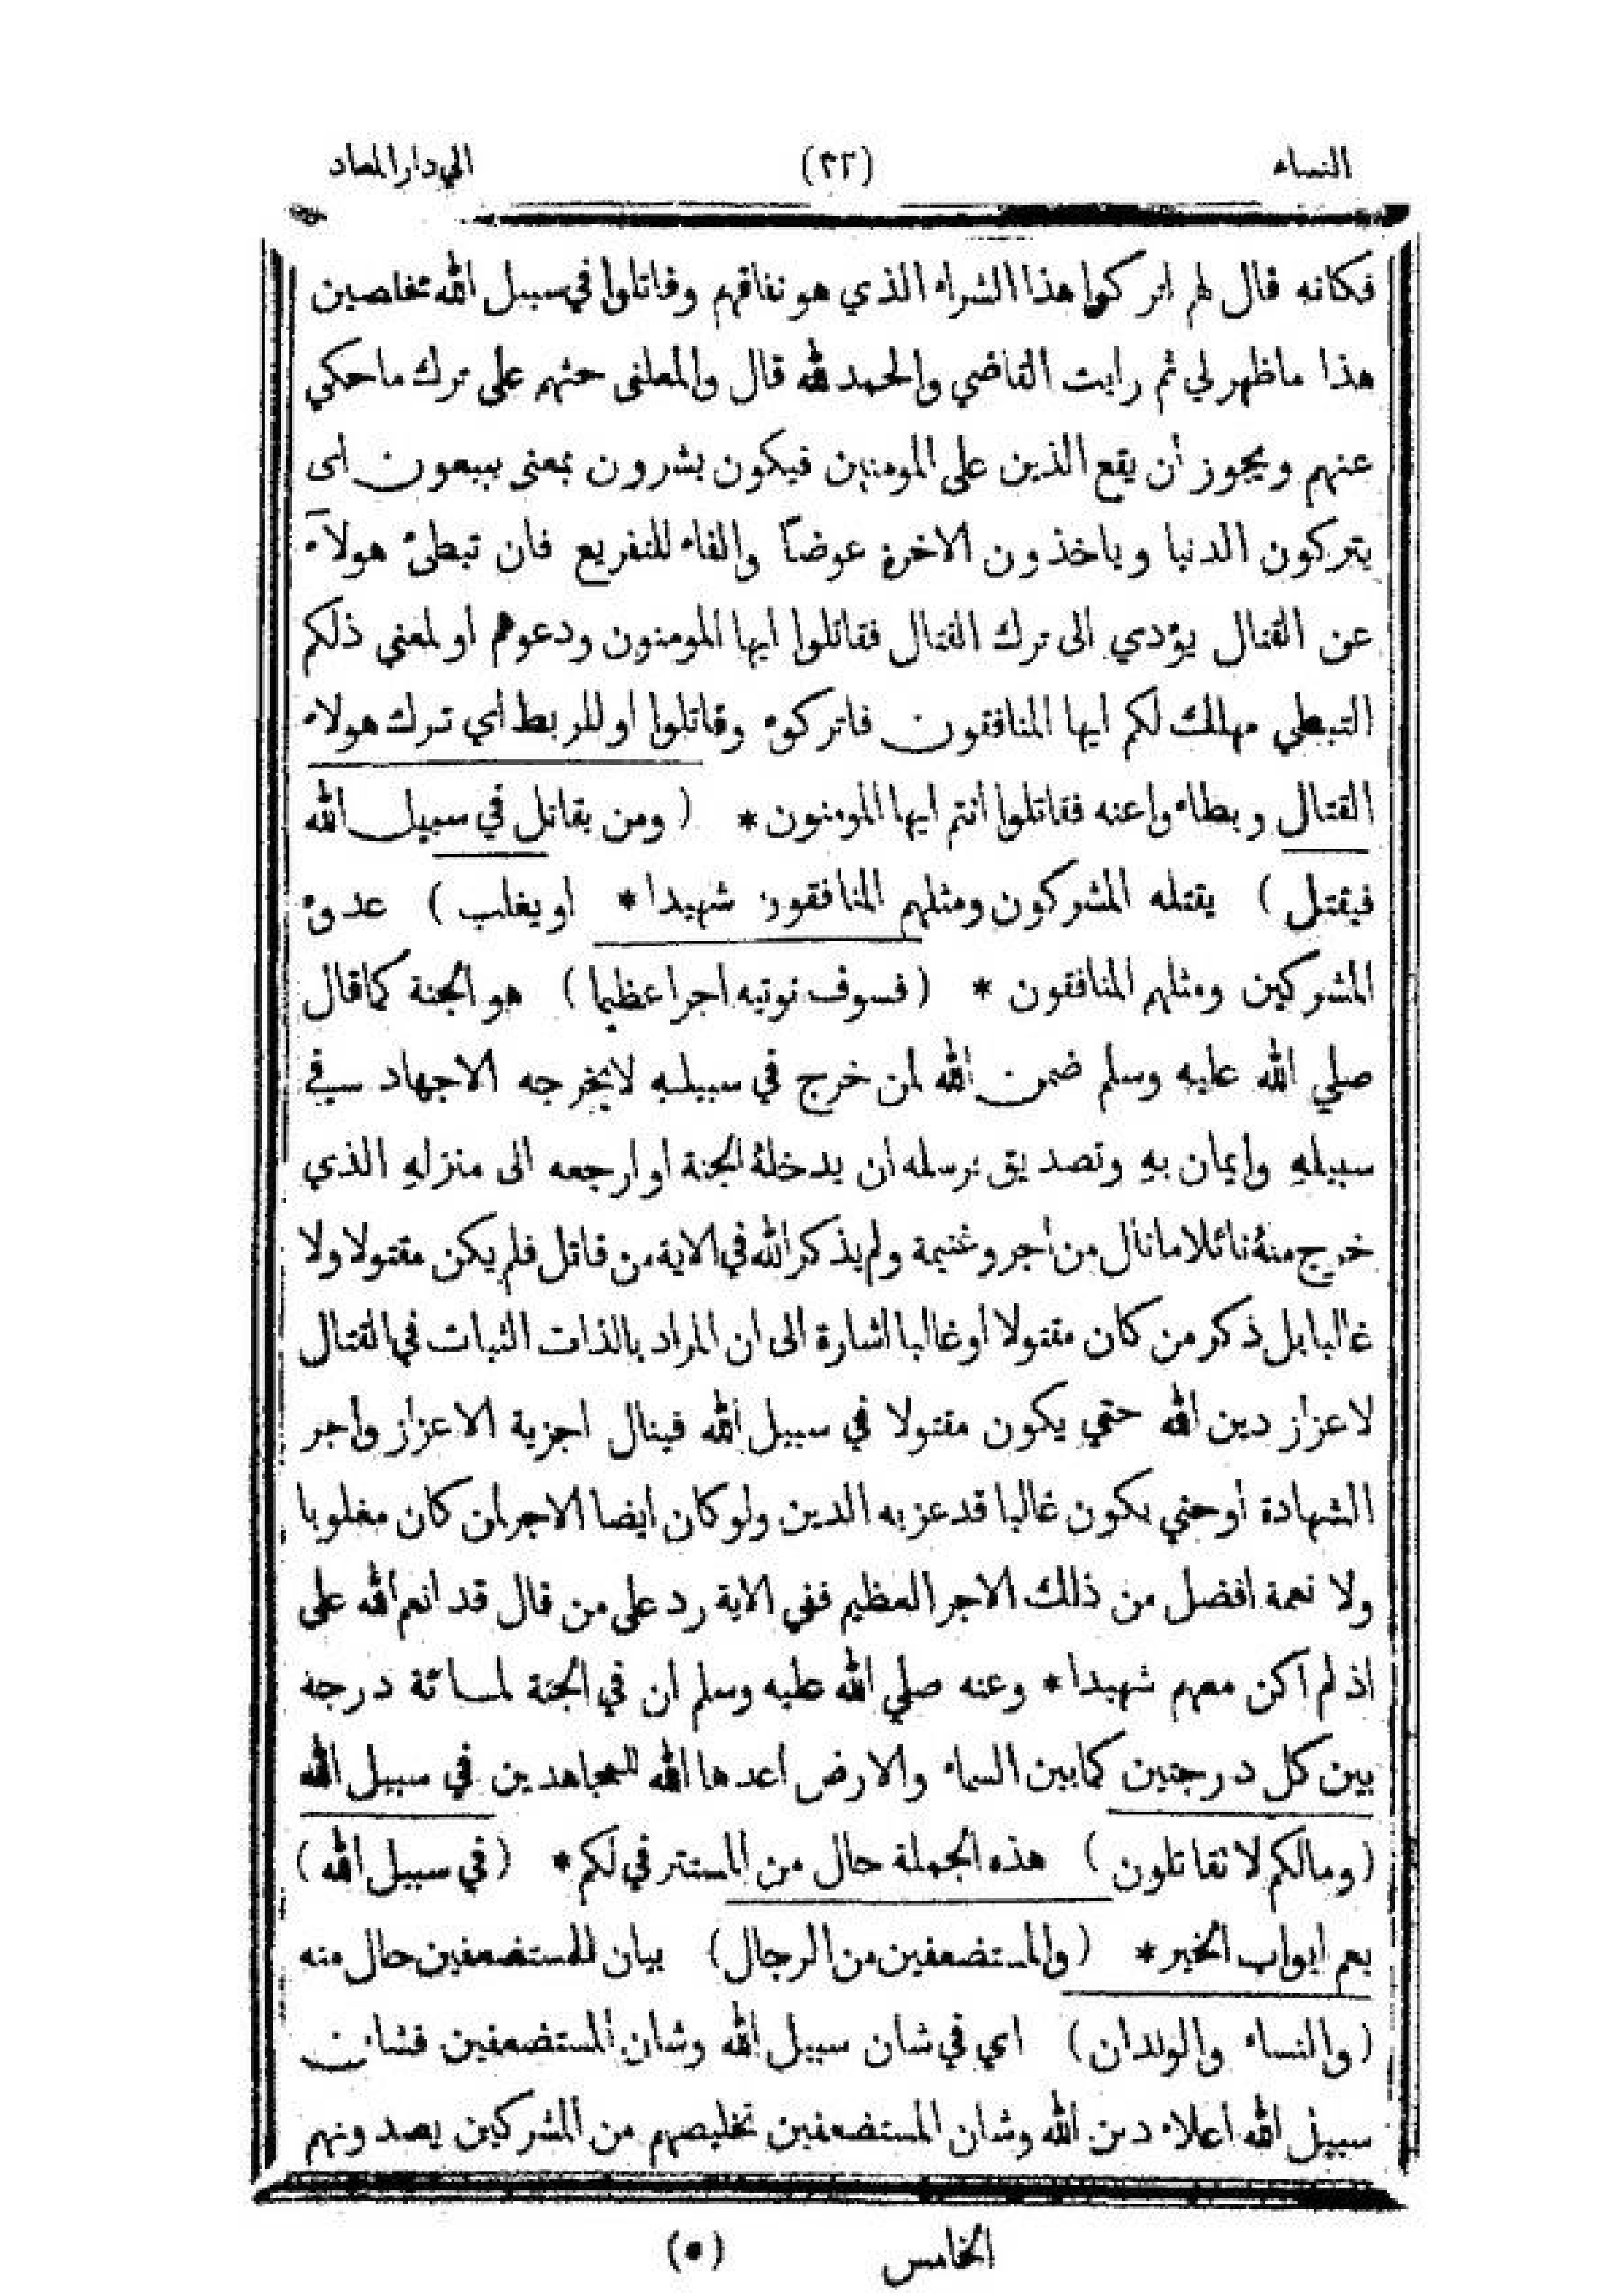 النساء (٣٣) الي دار المعاد
فكانه قال لهم اتركوا هذا الشراء الذي هو نفاقهم وقاتلوا في سبيل الله مخلصين
هذا ما ظهر لي ثم رايت القاضي والحمد لله قال والمعنى حثهم على ترك ما حكي
عنهم ويجوز أن يقع الذين على المومنين فيكون يشرون بمعنى يبيعون اى
يتركون الدنيا وياخذون الاخرة عوضاً والفاء للتفريع فان تبطئ هولاء
عن القتال يؤدي الى ترك القتال فقاتلوا ايها المومنون ودعوهم او لمعني ذلكم
التبطي مهلك لكم ايها المنافقون فاتركوه وقاتلوا او للربط اي ترك هولاء
القتال وبطاء وا عنه فقاتلوا انتم ايها المومنون * (ومن يقاتل في سبيل الله
فيقتل) يقتله المشركون ومثلهم المنافقون شهيدا * او يغلب) عدوه
المشركين ومثلهم المنافقون * (فسوف نوتيه اجرا عظيما) هو الجنة كما قال
صلي الله عليه وسلم ضمن الله لمن خرج في سبيله لا يخرجه الا جهاد في
سبيله وايمان به وتصديق برسله ان يدخلهُ الجنة او ارجعه الى منزله الذي
خرج منهُ نائلا ما نال من أجر وغنيمة ولم يذكر الله في الاية من قاتل فلم يكن مقتولا ولا
غالبا بل ذكر من كان مقتولا او غالبا اشارة الى ان المراد بالذات الثبات في القتال
لاعزاز دين الله حتي يكون مقتولا في سبيل الله فينال اجزية الاعزاز واجر
الشهادة أو حتي يكون غالبا قد عز به الدين ولو كان ايضا الاجر لمن كان مغلوبا
ولا نعمة افضل من ذلك الاجر العظيم ففي الاية رد على من قال قد انعم الله على
اذ لم اكن معهم شهيدا * وعنه صلي الله عليه وسلم ان في الجنة لمائة درجة
بين كل درجتين كما بين السماء والارض اعدها الله للمجاهدين في سبيل الله
(وما لكم لا تقاتلون) هذه الجملة حال من المستتر في لكم * (في سبيل الله)
يعم ابواب الخير * (والمستضعفين من الرجال) بيان للمستضعفين حال منه
(والنساء والولدان) اي في شان سبيل الله وشان المستضعفين فشان
سبيل الله أعلاء دين الله وشان المستضعفين تخليصهم من المشركين يصدونهم
الخامس (٥)